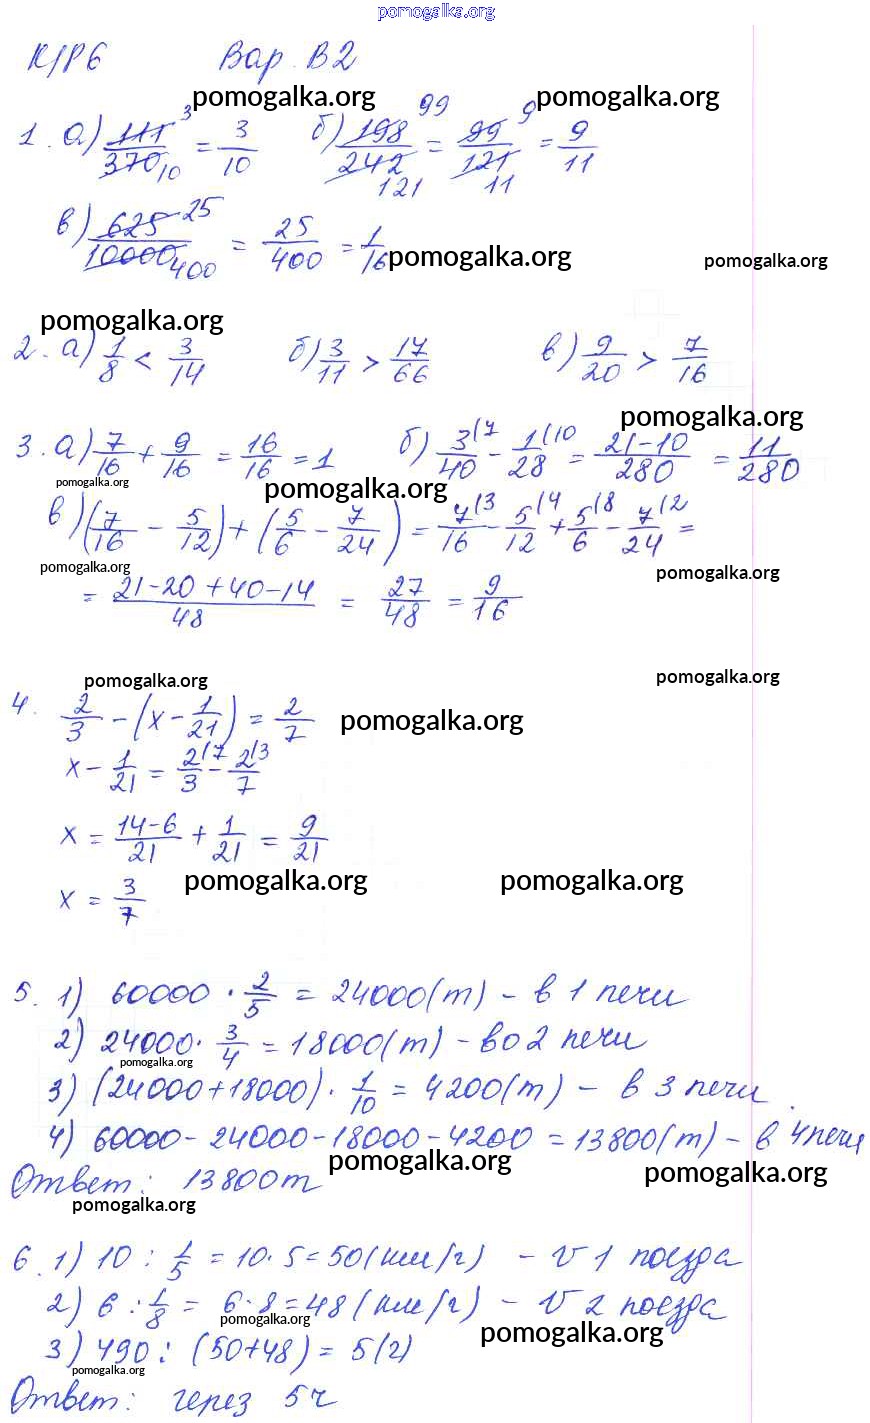 pomogalka.org
К/Р 6 Вар. В2
pomogalka.org pomogalka.org
1. а) 111/370 3/10 = 3/10 б) 198/242 99/121 = 99/121 9/11 = 9/11
в) 625/10000 25/400 = 25/400 = 1/16
pomogalka.org pomogalka.org
pomogalka.org
2. а) 1/8 < 3/14 б) 3/11 > 17/66 в) 9/20 > 7/16
pomogalka.org
3. а) 7/16 + 9/16 = 16/16 = 1 б) 3/40 (7 - 1/28 (10 = 21-10/280 = 11/280
pomogalka.org pomogalka.org
в) (7/16 - 5/12) + (5/6 - 7/24) = 7/16 (3 - 5/12 (4 + 5/6 (8 - 7/24 (2 =
pomogalka.org pomogalka.org
= 21-20+40-14/48 = 27/48 = 9/16
pomogalka.org pomogalka.org
4. 2/3 - (x - 1/21) = 2/7
pomogalka.org
x - 1/21 = 2/3 (7 - 2/7 (3
x = 14-6/21 + 1/21 = 9/21
x = 3/7
pomogalka.org pomogalka.org
5. 1) 60000 · 2/5 = 24000(т) - в 1 печи
2) 24000 · 3/4 = 18000(т) - во 2 печи
pomogalka.org
3) (24000+18000) · 1/10 = 4200(т) - в 3 печи.
4) 60000-24000-18000-4200 = 13800(т) - в 4 печи
pomogalka.org pomogalka.org
Ответ: 13800т
pomogalka.org
6. 1) 10 : 1/5 = 10·5=50(км/г) - v 1 поезда
2) 6 : 1/8 = 6·8=48(км/г) - v 2 поезда
pomogalka.org pomogalka.org
3) 490 : (50+48) = 5(г)
pomogalka.org
Ответ: через 5ч